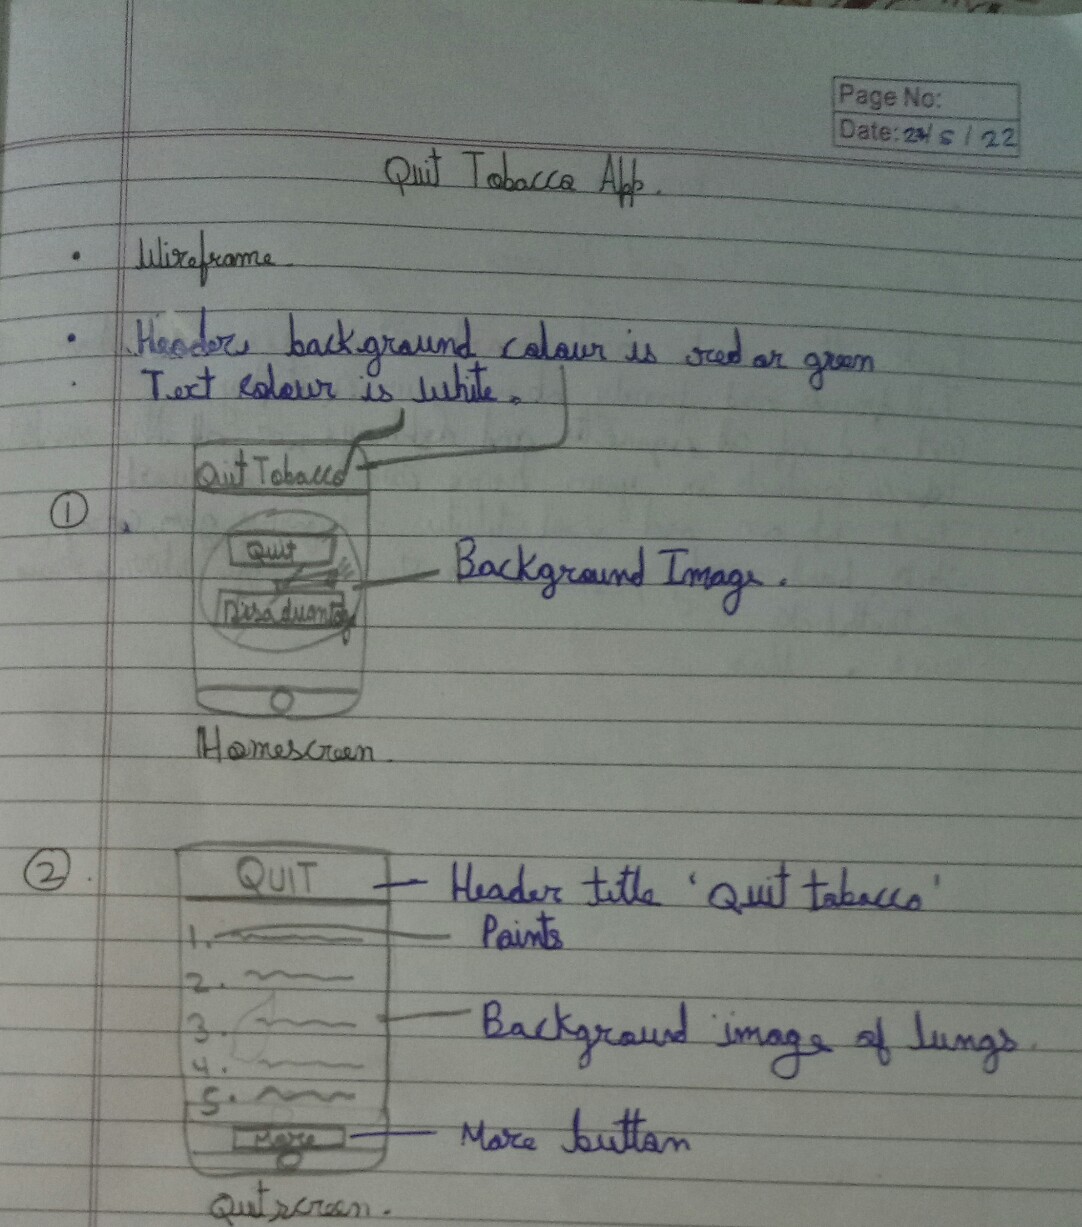 Page No:
Date: 24/5/22
Quit Tobacco App.
• Wireframe
• Headers background colour is red or green
• Text colour is white.
Quit Tobacco
①
Quit
Background Image.
Disadvantag
Homescreen.
②.
QUIT
Header title 'Quit tobacco'
1.
Points
2.
3.
Background image of lungs.
4.
5.
More
More button
Quitscreen.